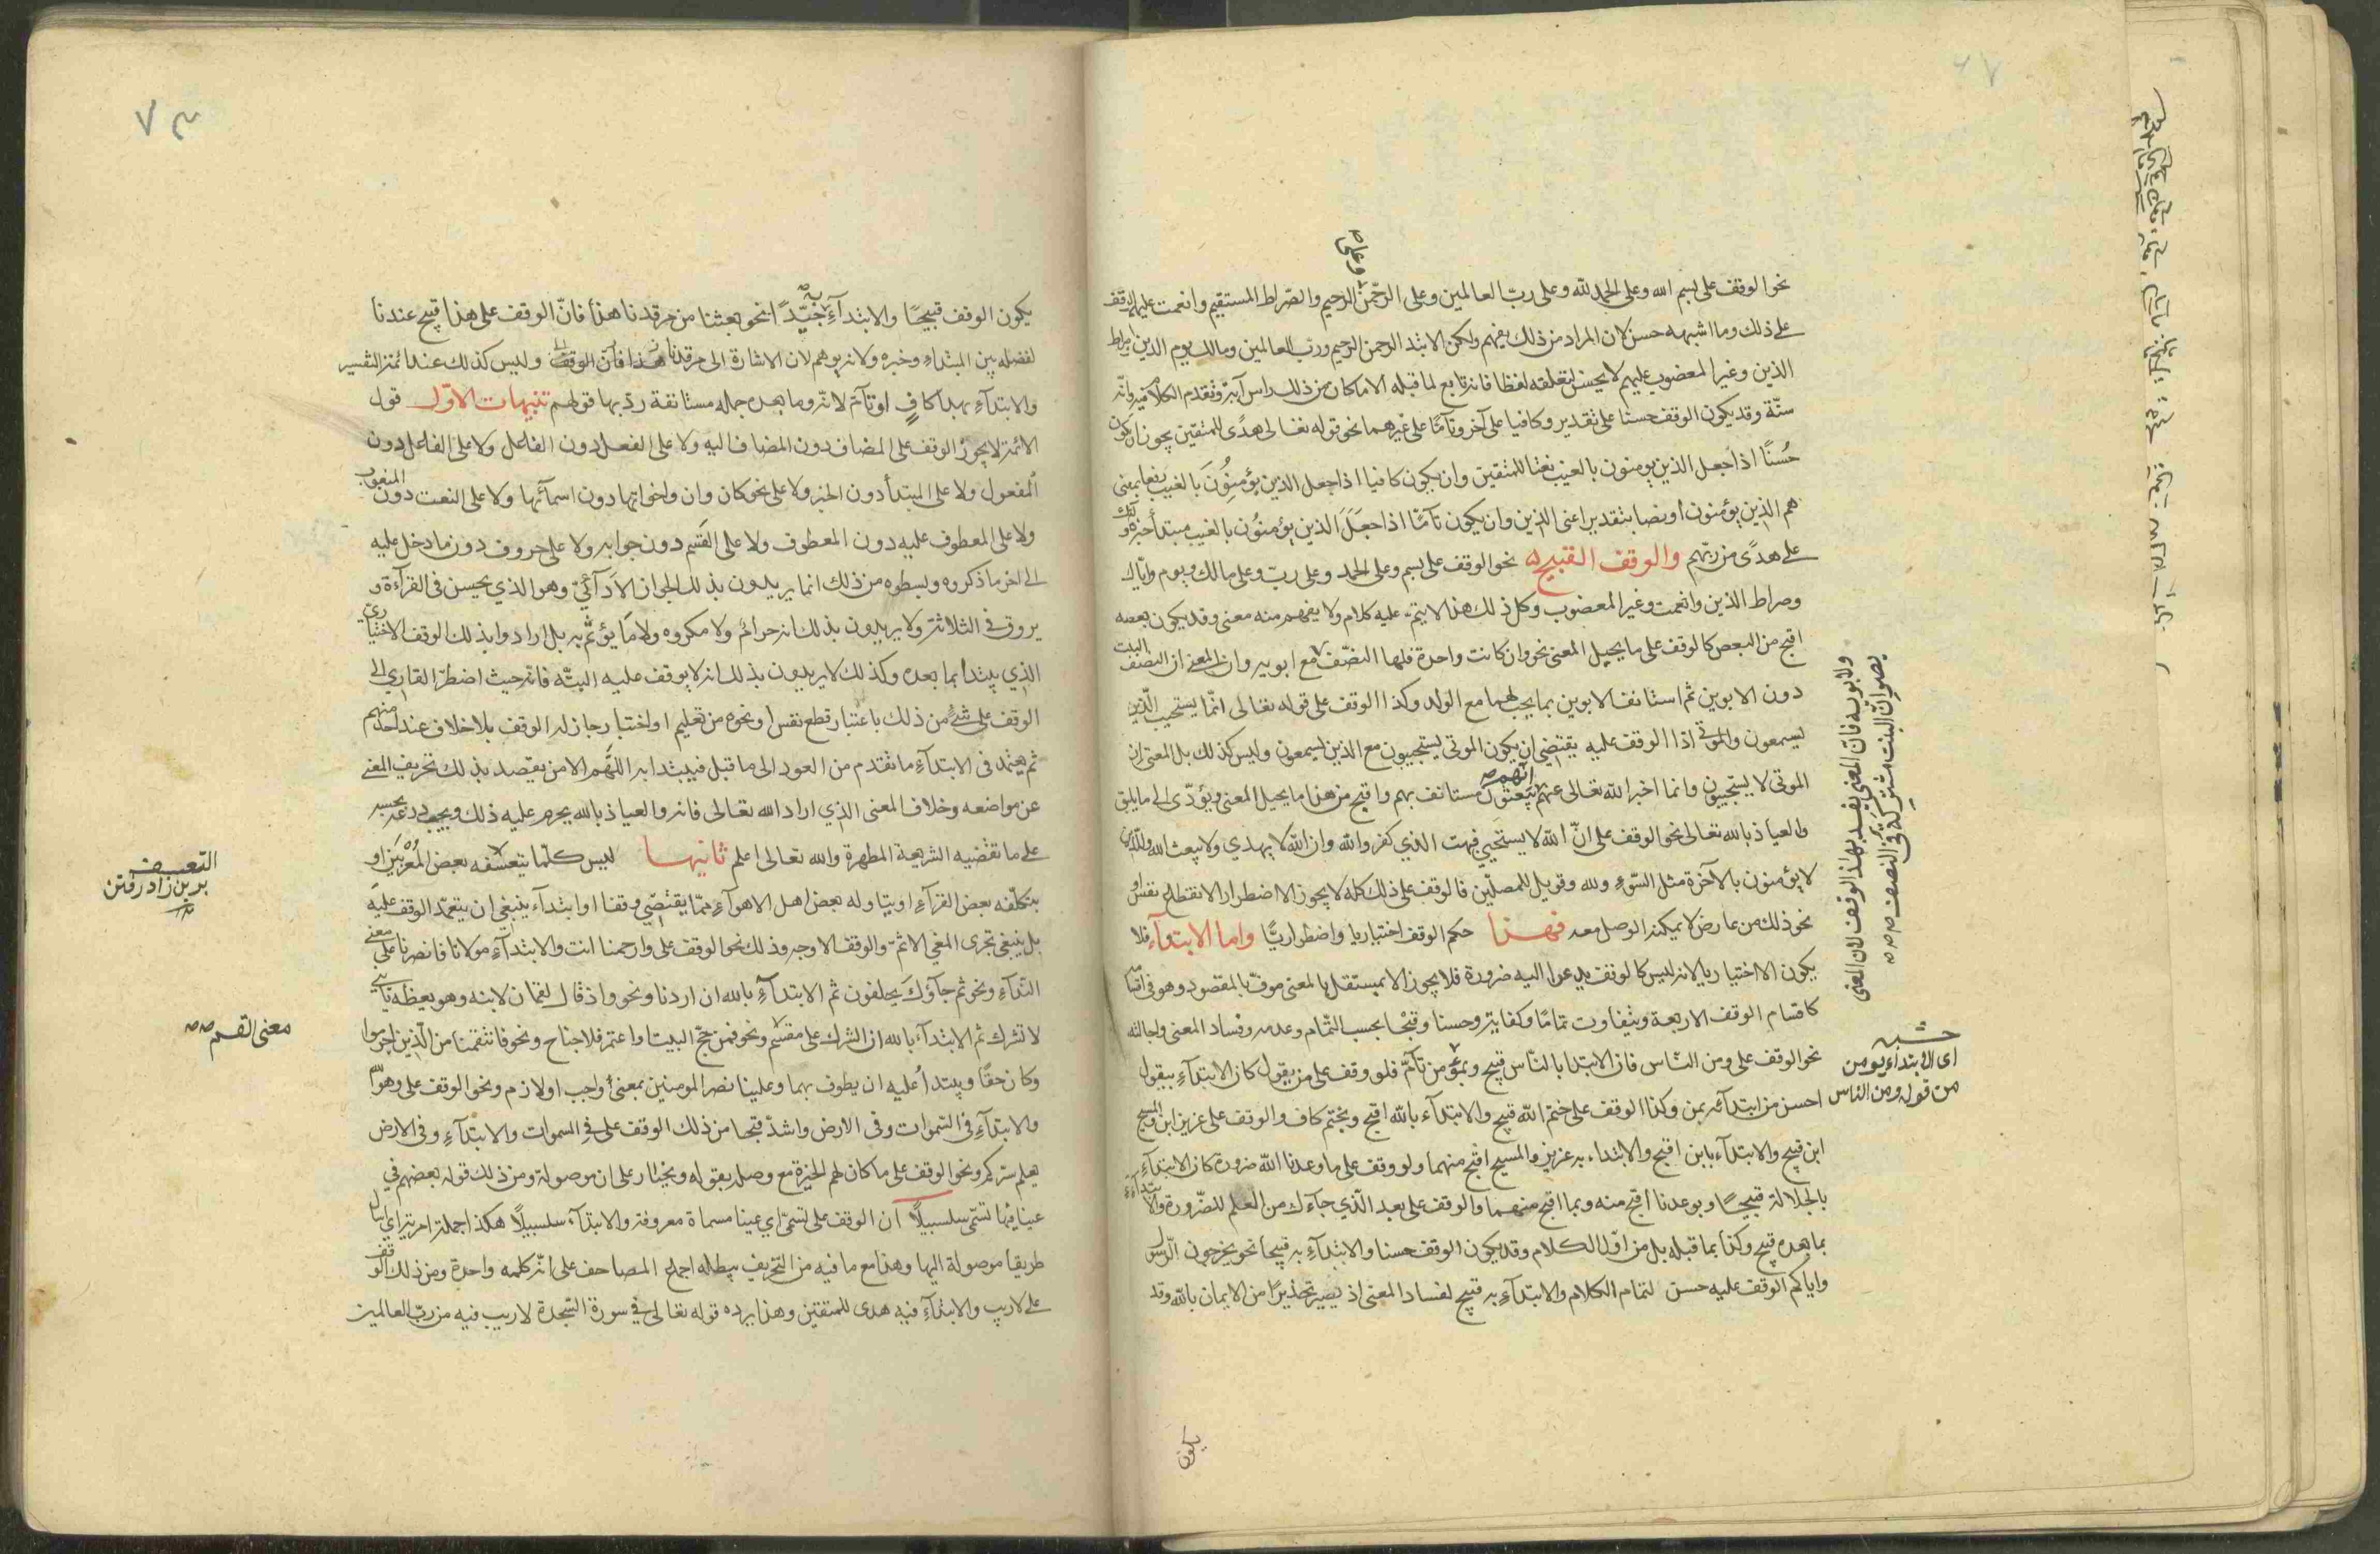 نحو الوقف على بسم الله وعلى الحمد لله وعلى رب العالمين وعلى الرحمن الرحيم والصراط المستقيم وانعمت عليهم الوقف
وعلى
على ذلك وما اشبهه حسن لان المراد من ذلك يفهم ولكن الابتدا الرحمن الرحيم ورب العالمين ومالك يوم الدين وصراط
الذين وغير المغضوب عليهم لا يحسن لتعلقه لفظا فانه تابع لما قبله الا ما كان من ذلك راس آية وتقدم الكلام فيه وانه
سنّة وقد يكون الوقف حسنا على تقدير وكافيا على آخر وتآمّا على غيرهما نحو قوله تعالى هدًى للمتقين يجوز ان يكون
حُسنًا اذا جعل الذين يومنون بالغيب نعتا للمتقين وان يكون كافيا اذا جعل الذين يؤمِنُونَ بالغيب رفعا بمعنى
هم الذين يؤمنون او نصبا بتقدير اعنى الذين وان يكون تآمًّا اذا جعَلَ الذين يؤمنُون بالغيب مبتدأ خبره اولئك
على هدًى من ربّهم والوقف القبيح نحو الوقف على بسم وعلى الحمد وعلى ربّ وعلى مالك ويوم وايّاك
وصراط الذين وانعمت وغير المغضوب وكل ذلك هذا لا يتم عليه كلام ولا يفهم منه معنى وقد يكون بعضه
اقبح من البعض كالوقف على ما يحيل المعنى نحو وان كانت واحدة فلها النصف مع ابويه وان المعنى ان البنت النصف
دون الابوين ثم استانف الابوين بما يجب لهما مع الولد وكذا الوقف على قوله تعالى انّما يستجيب الّذين
يسمعون والموتى اذا الوقف عليه يقتضى ان يكون الموتى يستجيبون مع الذين يسمعون وليس كذلك بل المعنى ان
الموتى لا يستجيبون وانما اخبر الله تعالى عنهم انّهم يُبعثون مستانف بهم واقبح من هذا ما يحيل المعنى ويؤدّى الى ما يليق
والعياذ بالله تعالى نحو الوقف على انّ الله لا يستحيى فبهت الذي كفر والله وان الله لا يهدي ولا يبعث الله وللذين
لا يؤمنون بالآخرة مثل السّوءِ ولله وفويل للمصلّين فالوقف على ذلك كله لا يجوز الا اضطرارا لانقطاع نفس او
نحو ذلك من عارض لا يمكنه الوصل معه فهذا حكم الوقف اختياريا واضطراريًّا واما الابتدآء فلا
يكون الا اختياريا لانه ليس كالوقف يدعوا اليه ضرورة فلا يجوز الا بمستقل بالمعنى موفّ بالمقصود وهو فى اقسامه
كاقسام الوقف الاربعة ويتفاوت تمامًا وكفاية وحسنا وقبحًا بحسب التّمام وعدمه وفساد المعنى واحالته
نحو الوقف على ومن النّاس فان الابتدا بالنّاس قبيح وبمَن تآمّ فلو وقف على من يقول كان الابتدآء بيقول
احسن من ابتدآئه بمن وكذا الوقف على ختم الله قبيح والابتدآء بالله اقبح وبختم كاف والوقف على عزير ابن والمسيح
ابن قبيح والابتدآء بابن اقبح والابتداء به عزير والمسيح اقبح منهما ولو وقف على ما وعدنا الله ضرورة كان الابتدآء
بالجلالة قبيحًا وبوعدنا اقبح منه وبما اقبح منهما والوقف على بعد الّذي جآءك من العلم للضّرورة والابتدآء
بما بعده قبيح وكذا بما قبله بل من اوّل الكلام وقد يكون الوقف حسنا والابتدآء به قبيحا نحو يخرجون الرّسول
واياكم الوقف عليه حسن لتمام الكلام والابتدآء به قبيح لفساد المعنى اذ يصير تحذيرًا من الايمان بالله وقد
يكون
ولابويه فان المعنى يفسد بهذا الوقف لان المعنى
يصير انّ البنت مشتركة فى النصف
اى الابتداء بيومن
من قوله ومن الناس
٧٣
يكون الوقف قبيحًا والابتدآءِ به جَيِّدًا نحو بعثنا من مرقدنا هذا فانّ الوقف على هذا قبيح عندنا
لفصله بين المبتداء وخبره ولانه يوهم لان الاشارة الى مرقدنا وليس كذلك عند ائمة التفسير
والابتدآء بهذا كافٍ او تآمّ لانّه وما بعده جملة مستانفة ردّ بها قولهم تنبيهات الاوّل قول
الائمة لا يجوز الوقف على المضاف دون المضاف اليه ولا على الفعل دون الفاعل ولا على الفاعل دون
المفعول ولا على المبتدأ دون الخبر ولا على نحو كان وان واخواتها دون اسمآئها ولا على النعت دون المنعوت
ولا على المعطوف عليه دون المعطوف ولا على القَسَم دون جوابه ولا على حروف دون ما دخل عليه
الى اخر ما ذكروه وبسطوه من ذلك انما يريدون بذلك الجواز الادآئيّ وهو الذي يحسن فى القرآءة و
يروق فى التلاوة ولا يريدون بذلك انه حرام ولا مكروه ولا ما يؤثّم به بل ارادوا بذلك الوقف الاختيارىّ
الذي يبتدأ بما بعده وكذلك لا يريدون بذلك انه لا يوقف عليه البتّه فانّه حيث اضطرّ القارى الى
الوقف على شئٍ من ذلك باعتبار قطع نفس او نحوه من تعليم او اختبار جاز له الوقف بلا خلاف عند احد منهم
ثم يعتمد فى الابتدآء ما تقدم من العود الى ما قبل فيبتدا به اللّهم الا من يقصد بذلك تحريف المعنى
عن مواضعه وخلاف المعنى الذي اراد الله تعالى فانه والعياذ بالله يحرم عليه ذلك ويجب ردعه بحسبه
على ما تقضيه الشريعة المطهرة والله تعالى اعلم ثانيها ليس كلّما يتعسّفه بعض المُعْرِبين او
يتكلّفه بعض القرآء او يتاوله بعض اهل الاهوآء ممّا يقتضي وقفا او ابتدآء ينبغي ان يتعمّد الوقف عليه
بل ينبغى تحرى المعنى الاتمّ والوقف الاوجه وذلك نحو الوقف على وارحمنا انت والابتدآء مولانا فانصرنا على معنى
النّدآء ونحو ثم جآؤكَ يَحلفون ثم الابتدآء بالله ان اردنا ونحو واذ قال لقمان لابنه وهو يعظه يابنى
لا تشرك ثم الابتدآء بالله ان الشرك على مقسم ونحو فمن حجّ البيت او اعتمر فلا جناح ونحو فانتقمنا من الّذين اجرموا
وكان حقًا ويبتدأ عليه ان يطوف بهما وعلينا نصر المومنين بمعنى واجب او لازم ونحو الوقف على وهو الله
والابتدآء فى السّموات وفى الارض واشدّ قبحا من ذلك الوقف على فى السموات والابتدآء وفى الارض
يعلم سرّكم ونحو الوقف على ما كان لهم الخيرة مع وصله بقوله ويختار على ان موصولة ومن ذلك قول بعضهم في
عينا فيها تسمّى سلسبيلًا ان الوقف على تسمّى اي عينا مسماة معروفة والابتدآء سلسبيلًا هكذا جملة امرية اي اسال
طريقا موصولة اليها وهذا مع ما فيه من التحريف يبطله اجماع المصاحف على انّه كلمه واحدة ومن ذلك الوقف
على لاريب والابتدآء فيه هدى للمتقين وهذا يرده قوله تعالى في سورة السّجدة لاريب فيه من ربّ العالمين
التعسف
معنى القسم